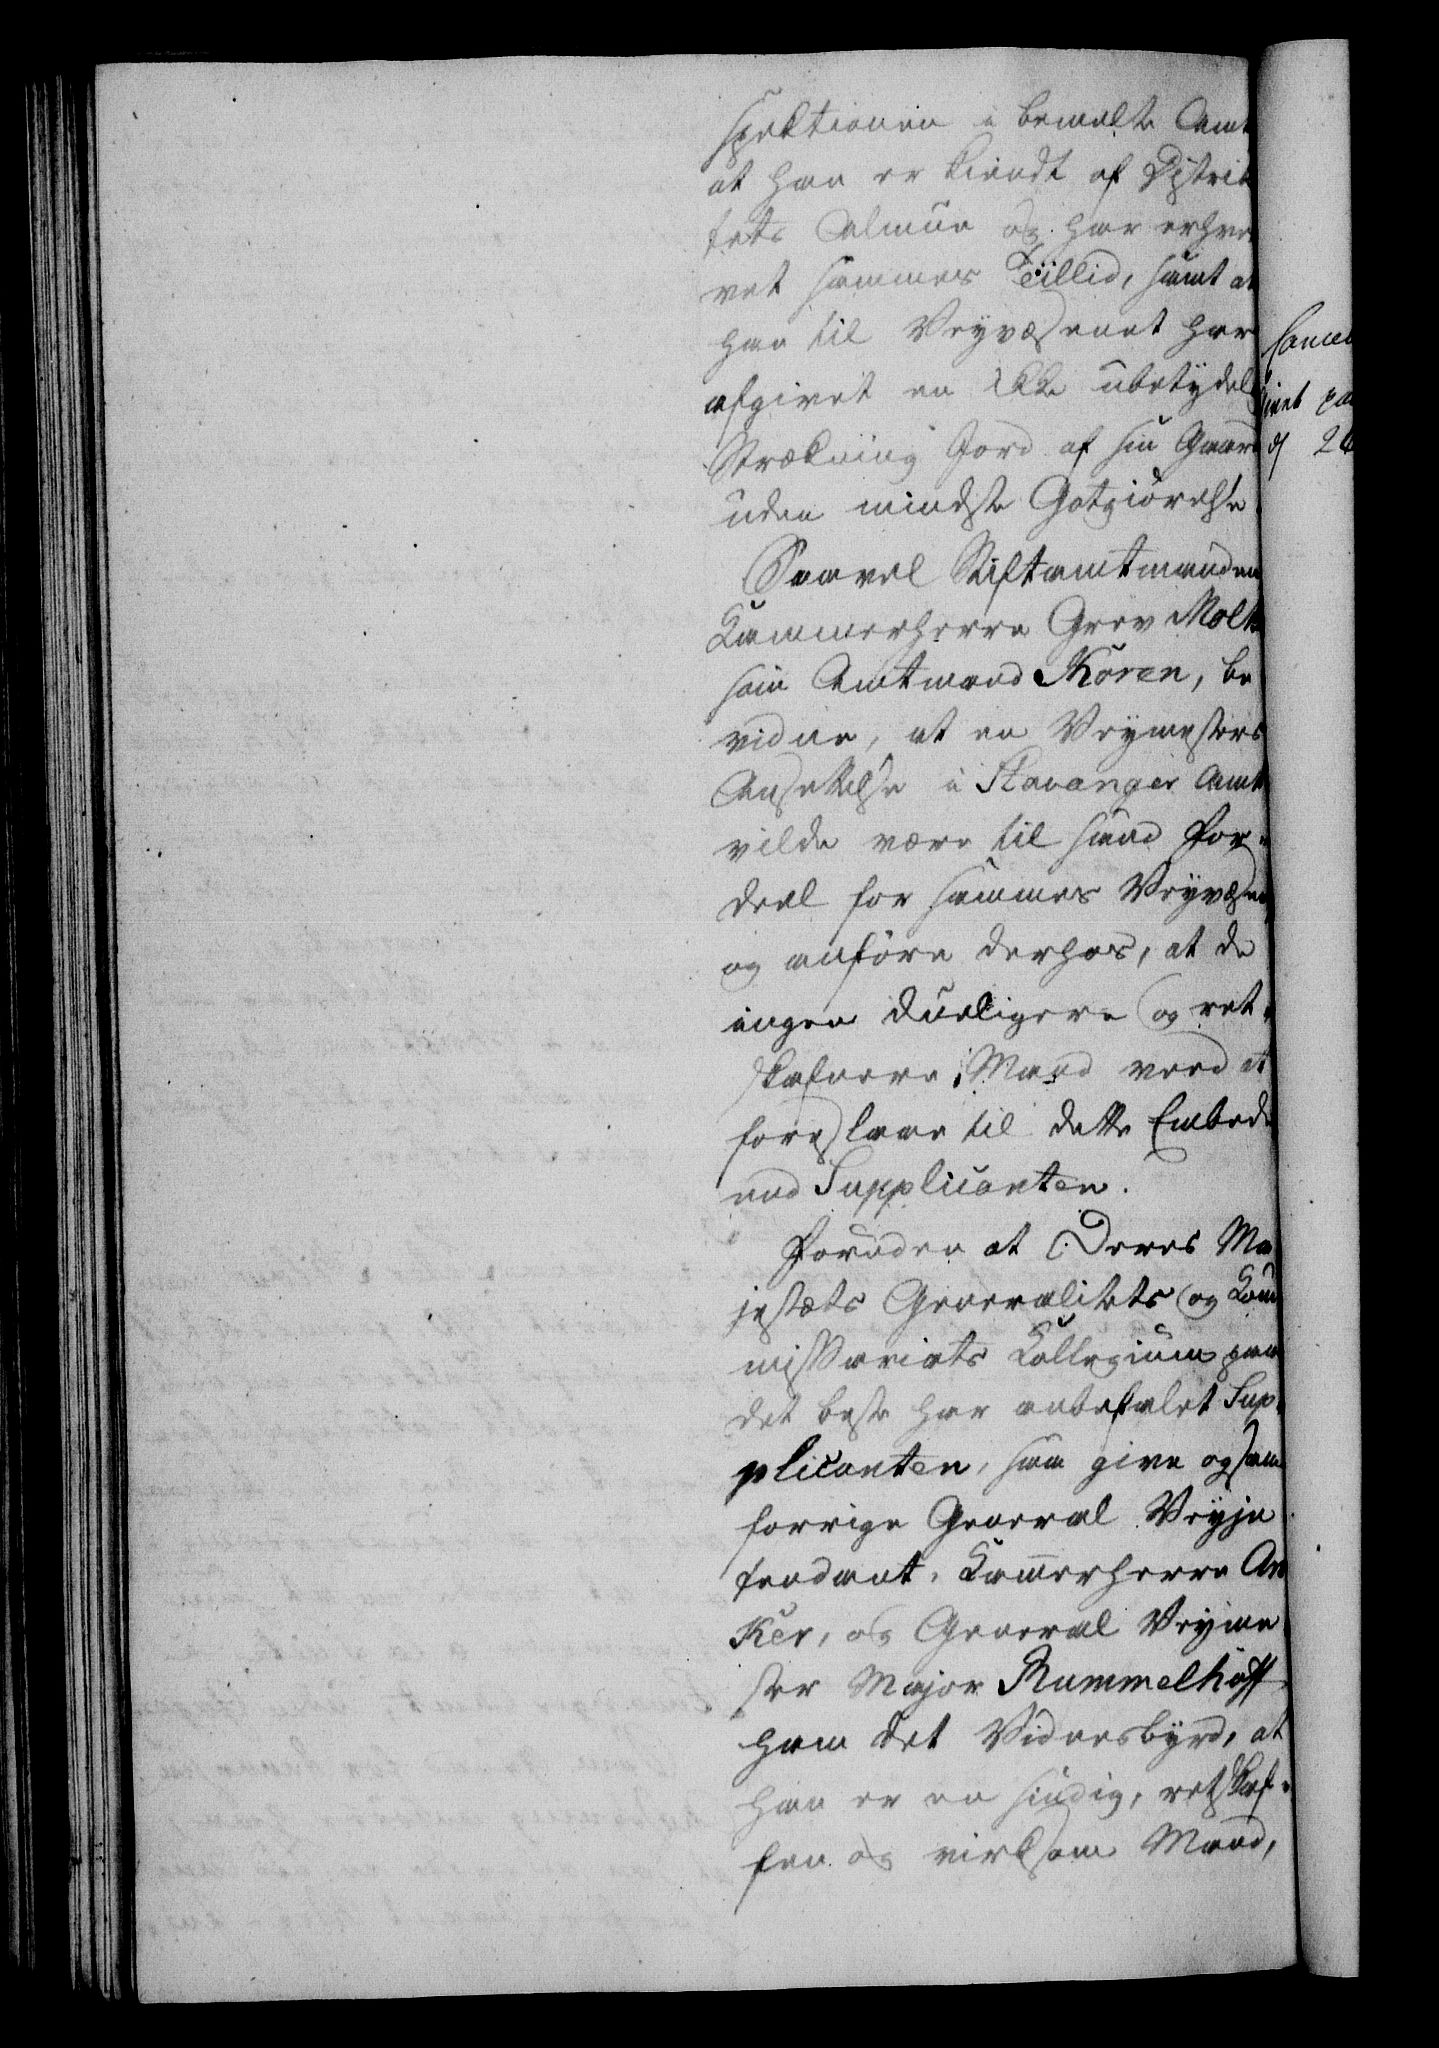 spektionen i bemelte Amt
at han er kiendt af Distrik
tets Almue og har erhver
vet sammes Tillid, samt at
han til Veyvæsenet har
afgivet en ikke ubetydel
Strækning Jord af sin Gaard
uden mindste Godtgiørelse
Saavel Stiftamtmanden
Kammerherre Grev Molt
som Amtmand Koren, be
vidne, at en Veymesters
Ansettelse i Stavanger Amt
vilde være til sand For-
deel for sammes Veyvæsen
og anføre derhos, at de
ingen dueligere og ret-
skafnere Mand veed at
foreslaae til dette Embede
end Supplicanten.
Foruden at Deres Ma
jestæts Generalitets og Kom
missariats Collegium paa
det beste har anbefalet Sup-
plicanten, saa give ogsaa
forrige General Veyin
tendant, Kammerherre An
ker, og General Veyme
ster Major Rummelhoff
ham det Vidnesbyrd, at
han er en sindig, retskaf-
fen og virksom Mand,